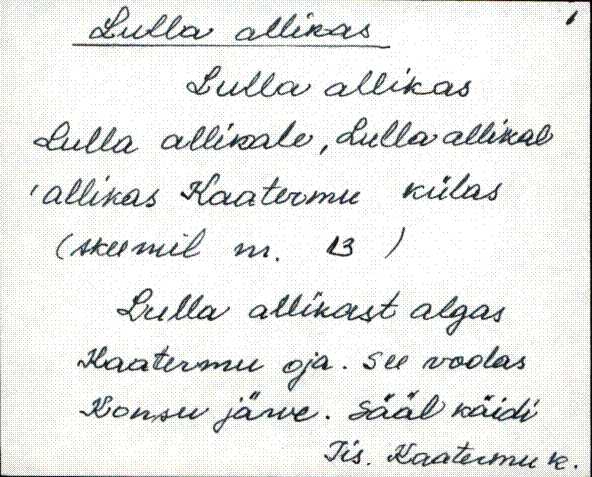 Lulla allikas
Lulla allikas
Lulla allikale, Lulla allikal
'allikas Kaatermu külas
(skeemil nr. 13)
Lulla allikast algas
Kaatermu oja. See voolas
Konsu järve. Sääl käidi
Iis. Kaatermu k.